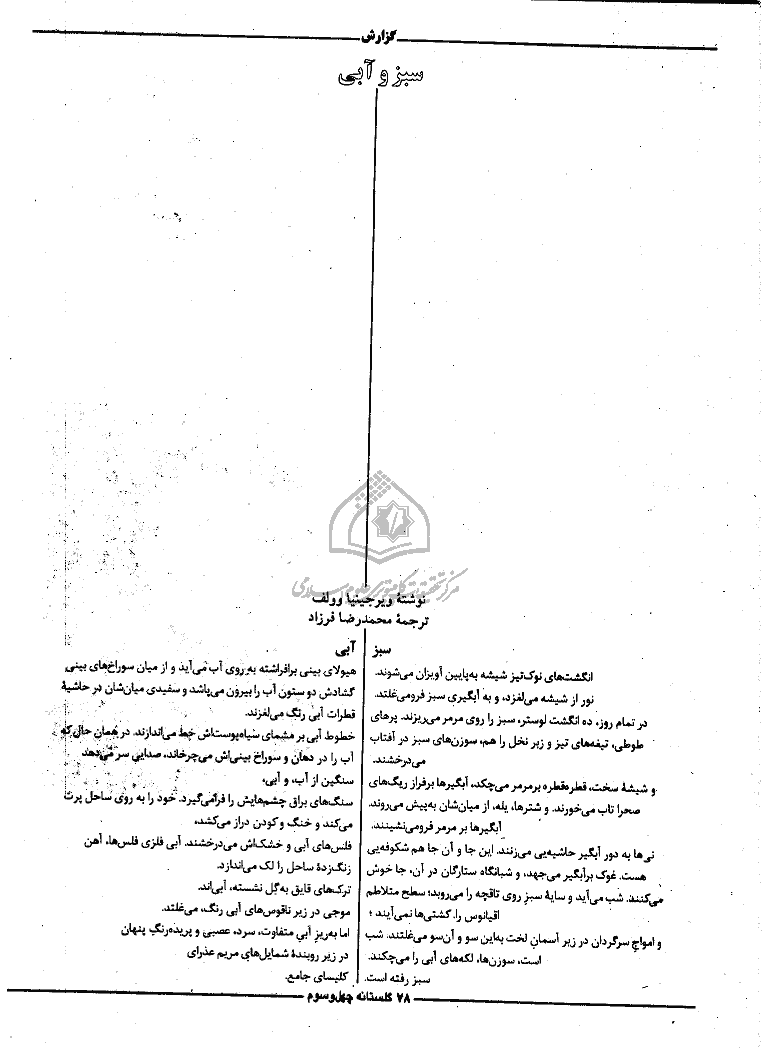 گزارش
سبز و آبی
مرکز تحقیقات کامپیوتری علوم اسلامی
نوشتهٔ ویرجینیا وولف
ترجمهٔ محمدرضا فرزاد
سبز
انگشت‌های نوک‌تیز شیشه به‌پایین آویزان می‌شوند.
نور از شیشه می‌لغزد، و به آبگیری سبز فرومی‌غلتد.
در تمام روز، ده انگشت لوستر، سبز را روی مرمر می‌ریزند. پرهای
طوطی، تیغه‌های تیز و زبر نخل را هم، سوزن‌های سبز در آفتاب
می‌درخشند.
و شیشهٔ سخت، قطره‌قطره برمرمر می‌چکد، آبگیرها برفراز ریگ‌های
صحرا تاب می‌خورند. و شترها، یله، از میان‌شان به‌پیش می‌روند.
آبگیرها بر مرمر فرومی‌نشینند.
نی‌ها به دور آبگیر حاشیه‌یی می‌زنند. این جا و آن جا هم شکوفه‌یی
هست. غوک برآبگیر می‌جهد، و شبانگاه ستارگان در آن، جا خوش
می‌کنند. شب می‌آید و سایهٔ سبز روی تاقچه را می‌روبد؛ سطح متلاطم
اقیانوس را. کشتی‌ها نمی‌آیند ؛
و امواج سرگردان در زیر آسمان لخت به‌این سو و آن‌سو می‌غلتند. شب
است، سوزن‌ها، لکه‌های آبی را می‌چکند.
سبز رفته است.
آبی
هیولای بینی برافراشته به‌روی آب می‌آید و از میان سوراخ‌های بینی
گشادش دو ستون آب را بیرون می‌پاشد و سفیدی میان‌شان در حاشیهٔ
قطرات آبی رنگ می‌لغزند.
خطوط آبی بر مشمای سیاه‌پوست‌اش خط می‌اندازند. در همان حال که
آب را در دهان و سوراخ بینی‌اش می‌چرخاند، صدایی سر می‌دهد
سنگین از آب، و آبی،
سنگ‌های براق چشم‌هایش را فرامی‌گیرد. خود را به روی ساحل پرت
می‌کند و خنگ و کودن دراز می‌کشد،
فلس‌های آبی و خشک‌اش می‌درخشند. آبی فلزی فلس‌ها، آهن
زنگ‌زدهٔ ساحل را لک می‌اندازد.
ترک‌های قایق به‌گل نشسته، آبی‌اند.
موجی در زیر ناقوس‌های آبی رنگ، می‌غلتد.
اما به‌ریزِ آبیِ متفاوت، سرد، عصبی و پریده‌رنگِ پنهان
در زیر روبندهٔ شمایل‌های مریم عذرای
کلیسای جامع.
۷۸ گلستانه چهل‌وسوم